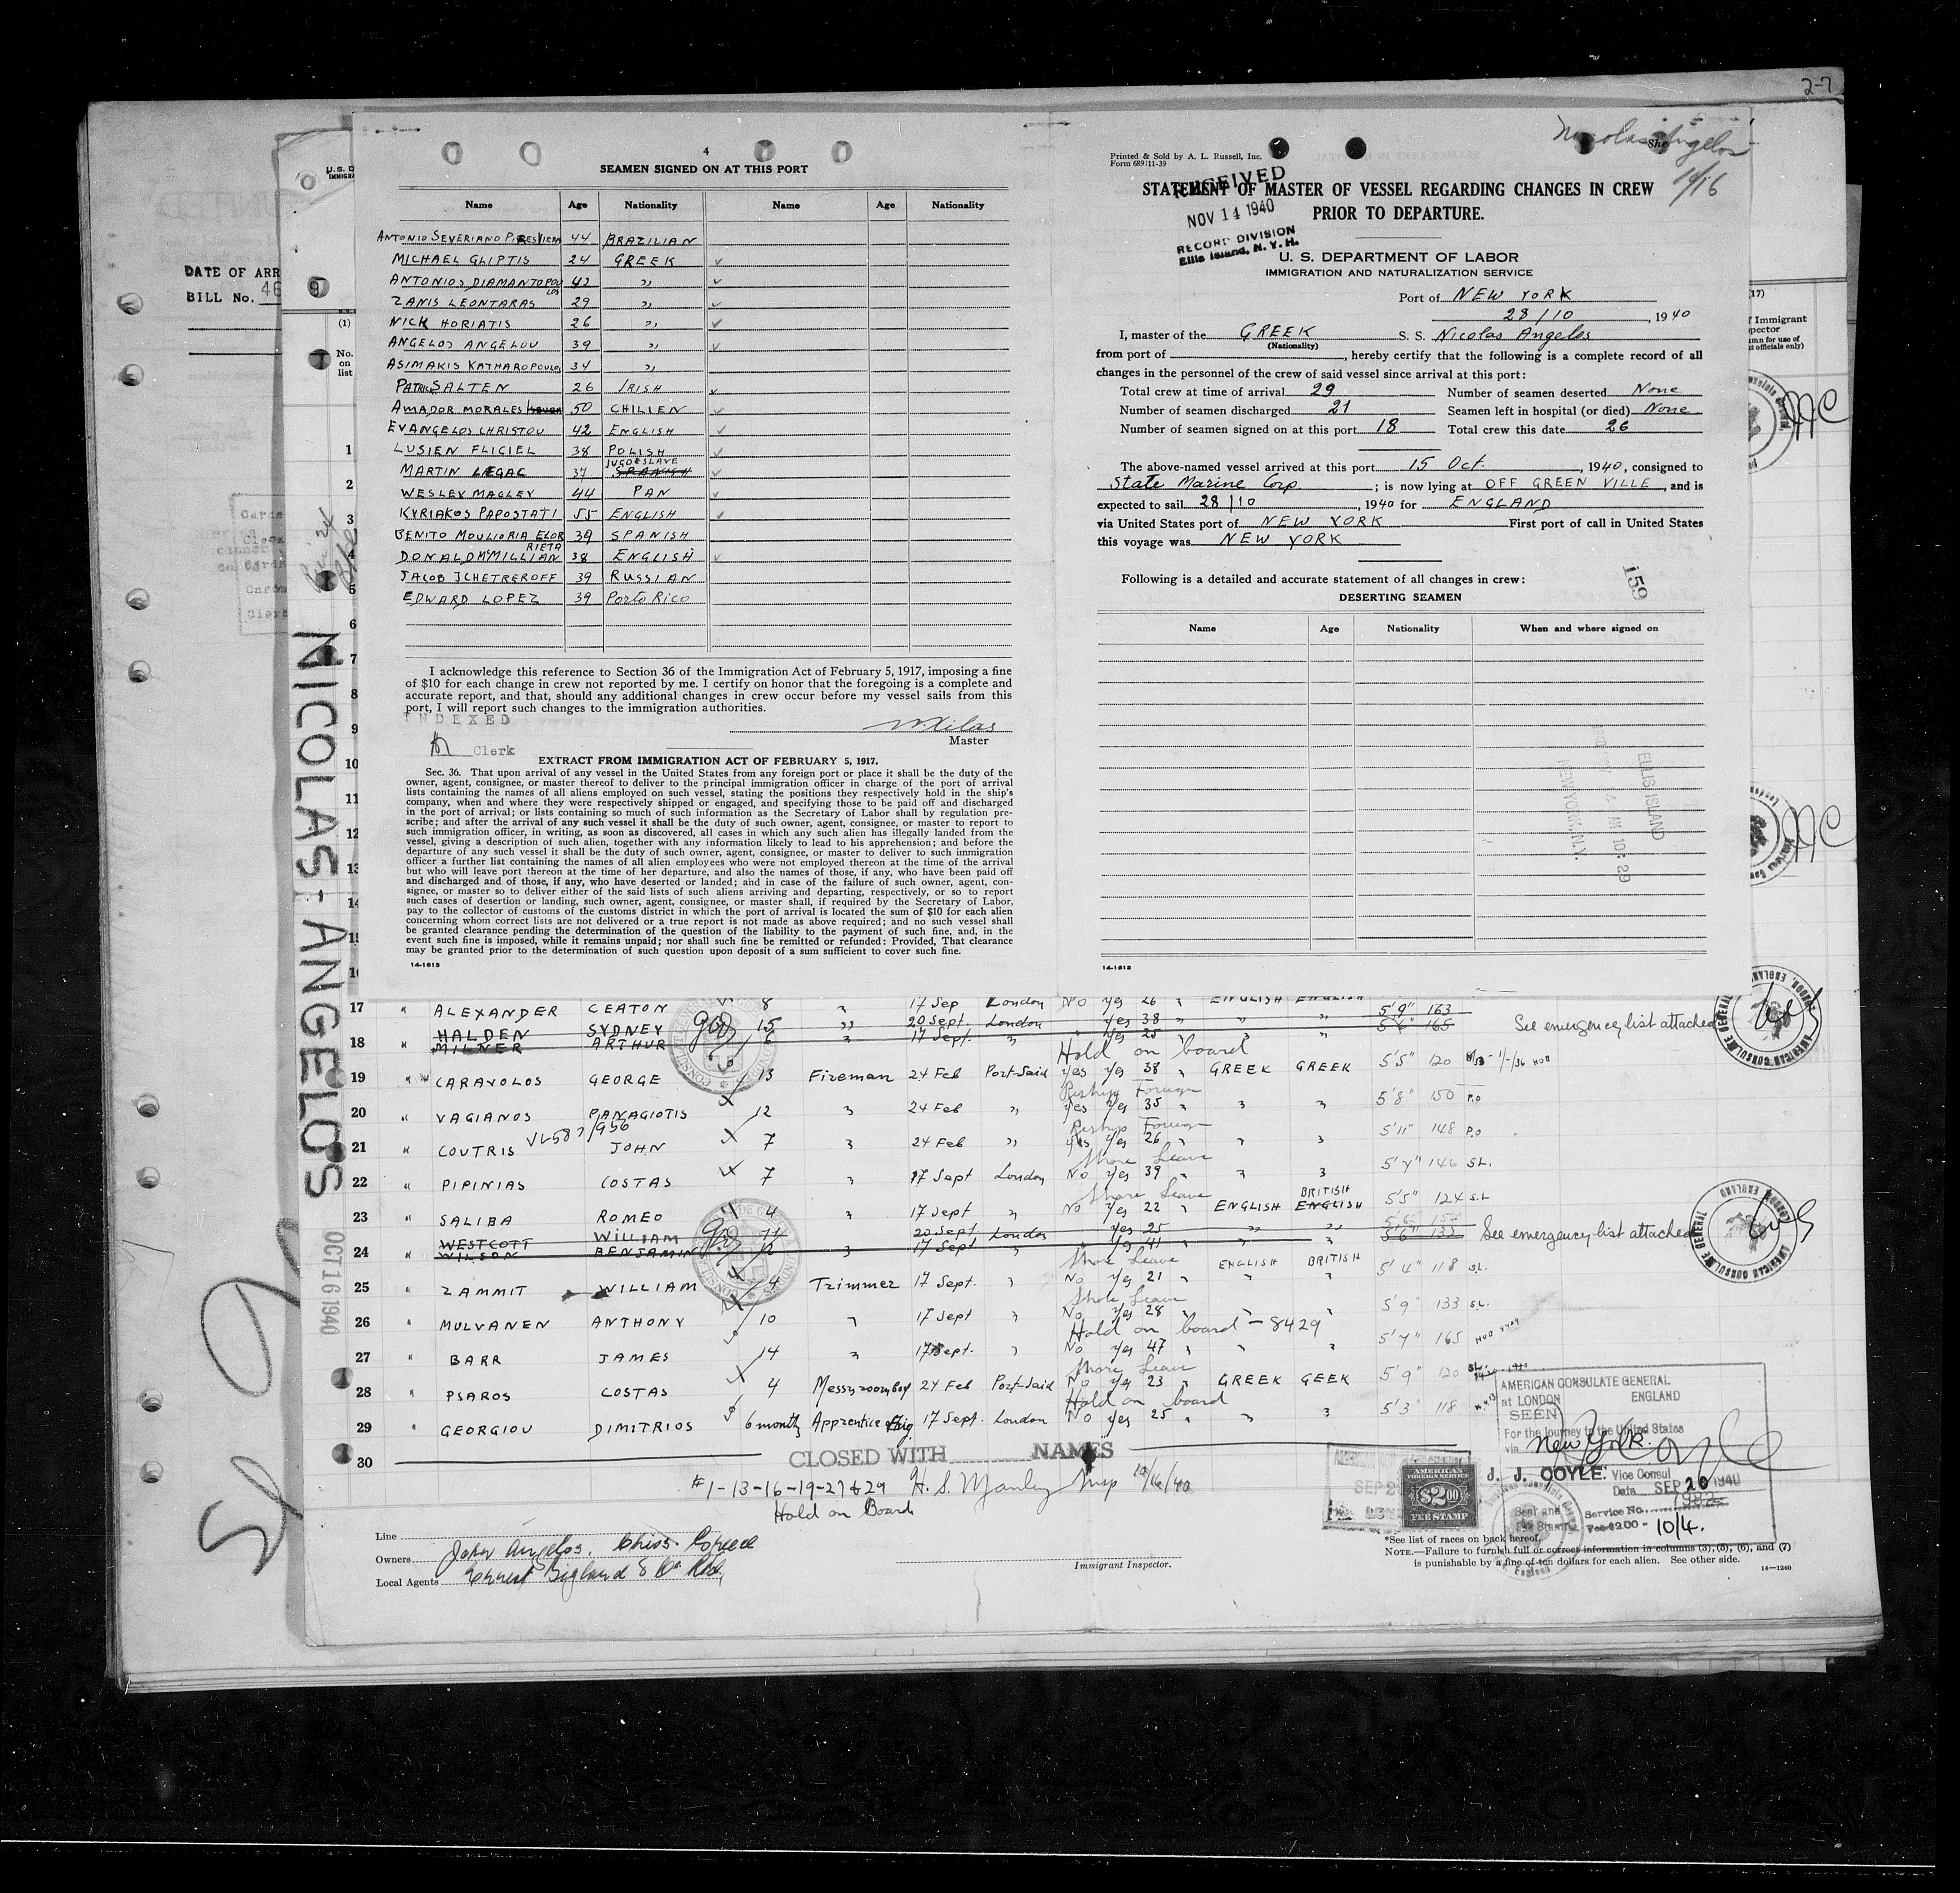 2-7
DATE OF ARR
BILL No. 46 9
U.S. D
IMMIGRA
(1)
No.
on
list
NICOLAS-ANGELOS
OCT 16 1940
4
SEAMEN SIGNED ON AT THIS PORT
Name Age Nationality Name Age Nationality
ANTONIO SEVERIANO 44 BRAZILIAN
MICHAEL GLIPTIS 24 GREEK
ANTONIOS DIAMANTOPOU
LOS 42 "
ZANIS LEONTARAS 29 "
NICK HORIATIS 26 "
ANGELOS ANGELOU 39 "
ASIMAKIS KATHAROPOULOS 34 "
PATRICK SALTEN 26 IRISH
AMADOR MORALES 50 CHILIEN
EVANGELOS CHRISTOU 42 ENGLISH
LUSIEN FLICIEL 38 POLISH
MARTIN LEGAC 37 JUGOESLAVE SPANISH
WESLEY MAGLEY 44 PAN
KYRIAKOS PAPOSTATI 55 ENGLISH
BENITO MOULIORIA ELOR
RIETA 39 SPANISH
DONALD McMILLIAN 38 ENGLISH
JACOB JCHETREROFF 39 RUSSIAN
EDWARD LOPEZ 39 Porto Rico
I acknowledge this reference to Section 36 of the Immigration Act of February 5, 1917, imposing a fine
of $10 for each change in crew not reported by me. I certify on honor that the foregoing is a complete and
accurate report, and that, should any additional changes in crew occur before my vessel sails from this
port, I will report such changes to the immigration authorities.
INDEXED
Clerk
Master
EXTRACT FROM IMMIGRATION ACT OF FEBRUARY 5, 1917.
Sec. 36. That upon arrival of any vessel in the United States from any foreign port or place it shall be the duty of the
owner, agent, consignee, or master thereof to deliver to the principal immigration officer in charge of the port of arrival
lists containing the names of all aliens employed on such vessel, stating the positions they respectively hold in the ship's
company, when and where they were respectively shipped or engaged, and specifying those to be paid off and discharged
in the port of arrival; or lists containing so much of such information as the Secretary of Labor shall by regulation pre-
scribe; and after the arrival of any such vessel it shall be the duty of such owner, agent, consignee, or master to report to
such immigration officer, in writing, as soon as discovered, all cases in which any such alien has illegally landed from the
vessel, giving a description of such alien, together with any information likely to lead to his apprehension; and before the
departure of any such vessel it shall be the duty of such owner, agent, consignee, or master to deliver to such immigration
officer a further list containing the names of all alien employees who were not employed thereon at the time of the arrival
but who will leave port thereon at the time of her departure, and also the names of those, if any, who have been paid off
and discharged and of those, if any, who have deserted or landed; and in case of the failure of such owner, agent, con-
signee, or master so to deliver either of the said lists of such aliens arriving and departing, respectively, or so to report
such cases of desertion or landing, such owner, agent, consignee, or master shall, if required by the Secretary of Labor,
pay to the collector of customs of the customs district in which the port of arrival is located the sum of $10 for each alien
concerning whom correct lists are not delivered or a true report is not made as above required; and no such vessel shall
be granted clearance pending the determination of the question of the liability to the payment of such fine, and, in the
event such fine is imposed, while it remains unpaid; nor shall such fine be remitted or refunded: Provided, That clearance
may be granted prior to the determination of such question upon deposit of a sum sufficient to cover such fine.
14-1613
Nicolas Angelos
She
11/16
Printed & Sold by A. L. Russell, Inc.
Form 689I11-39
RECEIVED
NOV 14 1940
RECORD DIVISION
Ellis Island, N. Y. H.
STATEMENT OF MASTER OF VESSEL REGARDING CHANGES IN CREW
PRIOR TO DEPARTURE.
U. S. DEPARTMENT OF LABOR
IMMIGRATION AND NATURALIZATION SERVICE
Port of NEW YORK
28/10, 1940
I, master of the GREEK S. S. Nicolas Angelos
(Nationality)
from port of , hereby certify that the following is a complete record of all
changes in the personnel of the crew of said vessel since arrival at this port:
Total crew at time of arrival 29 Number of seamen deserted None
Number of seamen discharged 21 Seamen left in hospital (or died) None
Number of seamen signed on at this port 18 Total crew this date 26
The above-named vessel arrived at this port 15 Oct., 1940, consigned to
State Marine Corp. ; is now lying at OFF GREEN VILLE, and is
expected to sail 28/10, 1940 for ENGLAND
via United States port of NEW YORK First port of call in United States
this voyage was NEW YORK
159
Following is a detailed and accurate statement of all changes in crew:
DESERTING SEAMEN
Name Age Nationality When and where signed on
ELLIS ISLAND
AM 10:29
NEW YORK, N.Y.
14-1613
(17)
Immigrant
1
2
3
4
5
6
7
8
9
10
11
12
13
14
17 " ALEXANDER CEATON 8 " 17 Sep London No yes 26 " ENGLISH ENGLISH 5'9" 163
HALDEN SYDNEY 15 " 20 Sept. London yes 38 " " " 5'6" 165 See emergency list attached
18 " MILNER ARTHUR 6 " 17 Sept. " yes 25 " " "
Hold on board
19 " CARAVOLOS GEORGE 13 Fireman 24 Feb Port-Said yes yes 38 " GREEK GREEK 5'5" 120
Reship Foreign
20 " VAGIANOS PANAGIOTIS 12 " 24 Feb " yes yes 35 " " " 5'8" 150 P.O
Reship Foreign
21 " COUTRIS JOHN 7 " 24 Feb " yes yes 26 " " " 5'11" 148 P.O
Shore Leave
22 " PIPINIAS COSTAS 7 " 17 Sept London No yes 39 " " " 5'7" 146 S.L.
Shore Leave
23 " SALIBA ROMEO 4 " 17 Sept " No yes 22 " ENGLISH BRITISH ENGLISH 5'5" 124 S.L
WESTCOTT WILLIAM 14 20 Sept. London yes 25 " " See emergency list attached
24 " WILSON BENJAMIN 12 " 17 Sept " yes 41 " " 5'6" 133
Shore Leave
25 " ZAMMIT WILLIAM 4 Trimmer 17 Sept. " No yes 21 " ENGLISH BRITISH 5'4" 118 S.L.
Shore Leave
26 " MULVANEN ANTHONY 10 " 17 Sept " No yes 28 " " " 5'9" 133 S.L.
Hold on board - 8429
27 " BARR JAMES 14 " 17 Sept. " No yes 47 " " " 5'7" 165
Shore Leave
28 " PSAROS COSTAS 4 Messroomboy 24 Feb Port-Said No yes 23 " GREEK GEEK 5'9" 120 S.L.
Hold on board
29 " GEORGIOU DIMITRIOS 6 month Apprentice 17 Sept. London No yes 25 " " " 5'3" 118
30
CLOSED WITH NAMES
#1-13-16-19-27&29 H. S. Manley Insp 10/16/40
Hold on Board
Line
Owners John Angelos, Chios Greece
Local Agents
Immigrant Inspector.
AMERICAN CONSULATE GENERAL
at LONDON ENGLAND
SEEN
For the journey to the United States
via New York.
J. J. COYLE. Vice Consul
Date SEP 20 1940
Service No. 982
Fee $2.00 - 10/4.
AMERICAN
FOREIGN SERVICE
$2.00
FEE STAMP
*See list of races on back hereof.
NOTE.—Failure to furnish full or correct information in columns (3), (5), (6), and (7)
is punishable by a fine of ten dollars for each alien. See other side.
14—1240